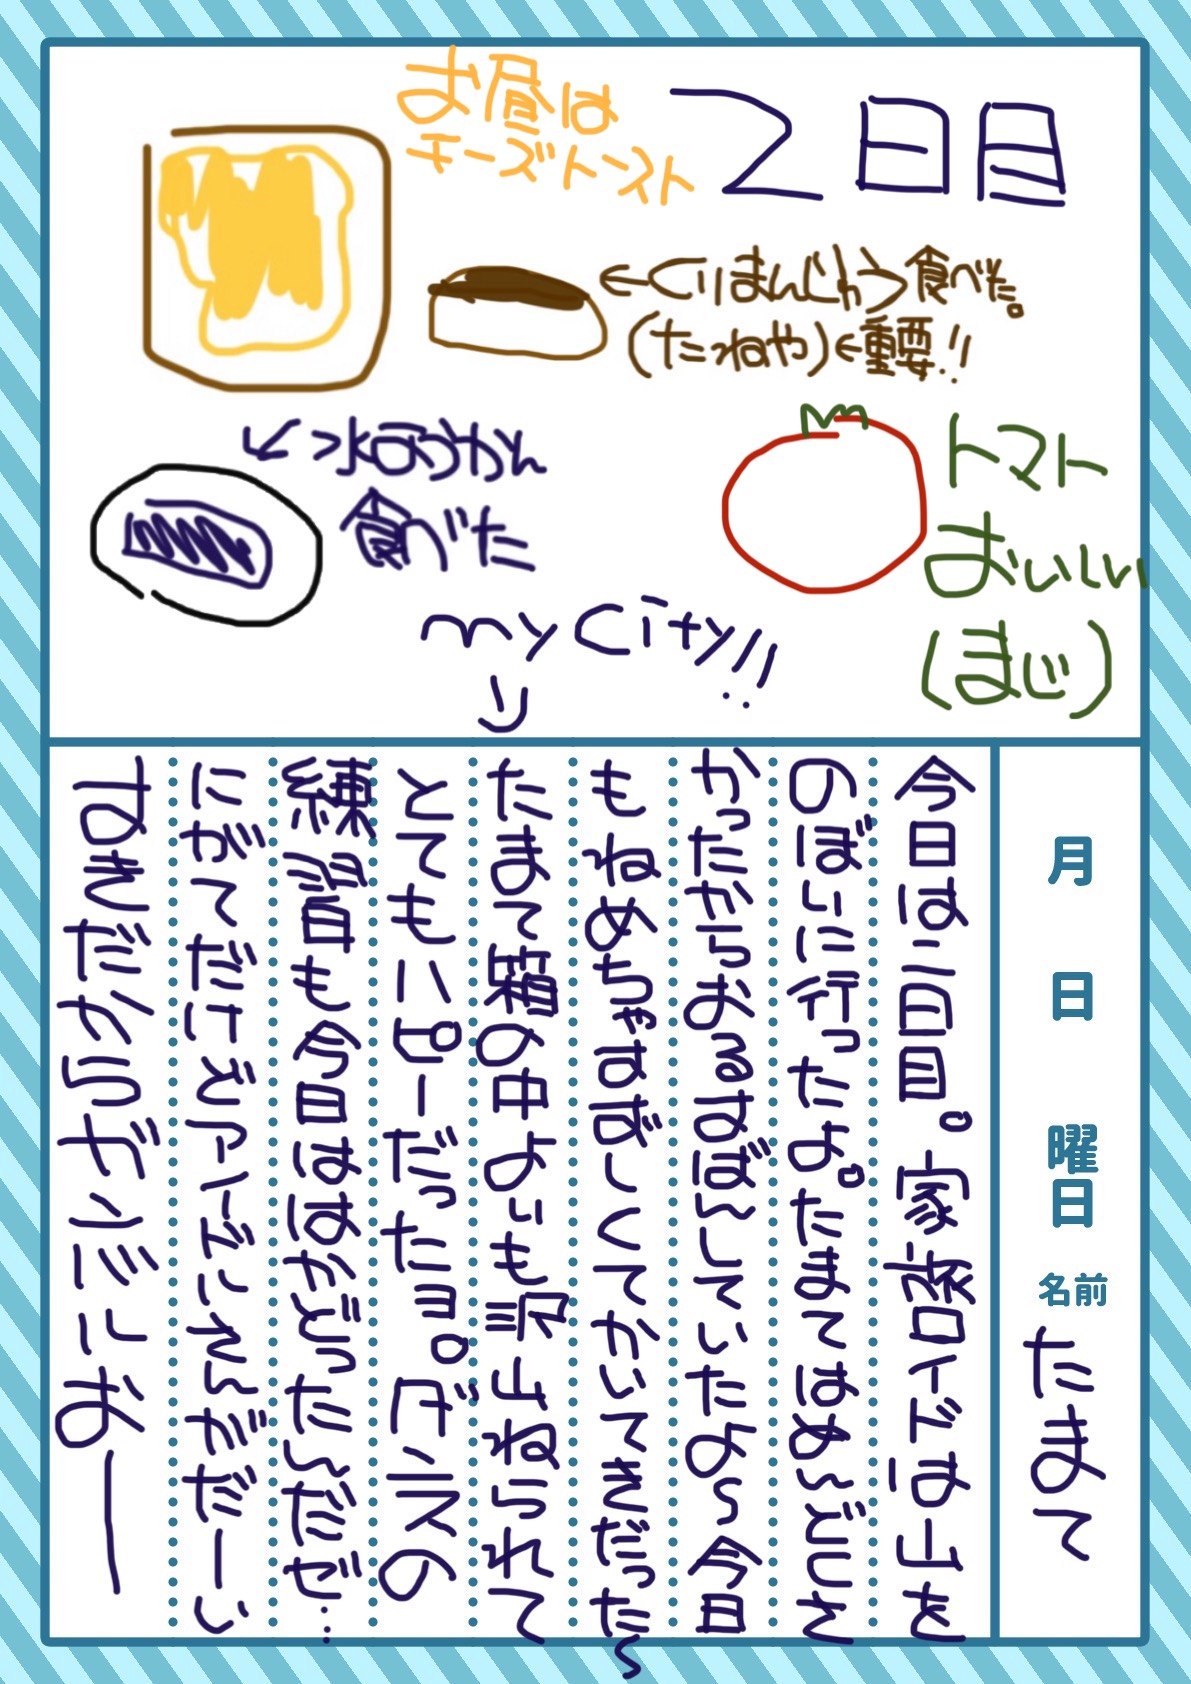 2日目
お昼は
チーズトースト
←くりまんじゅう食べた。
(たねや)←重要!!
↙水ようかん
食べた
トマト
おいしい
(まじ)
my city!!
月 日 曜日 名前 たまて
今日は二日目。家旅ロイドは山を
のぼりに行ったよ。たまてはめんどくさ
かったからおるすばんしていたよ〜今日
もねめちゃすずしくてかいてきだった〜
たまて箱の中よりも沢山ねられて
とてもハピーだったヨ。ダンスの
練習も今日ははかどったんだゼ…
にがてだけど がだーい
すきだからガンバルにおー